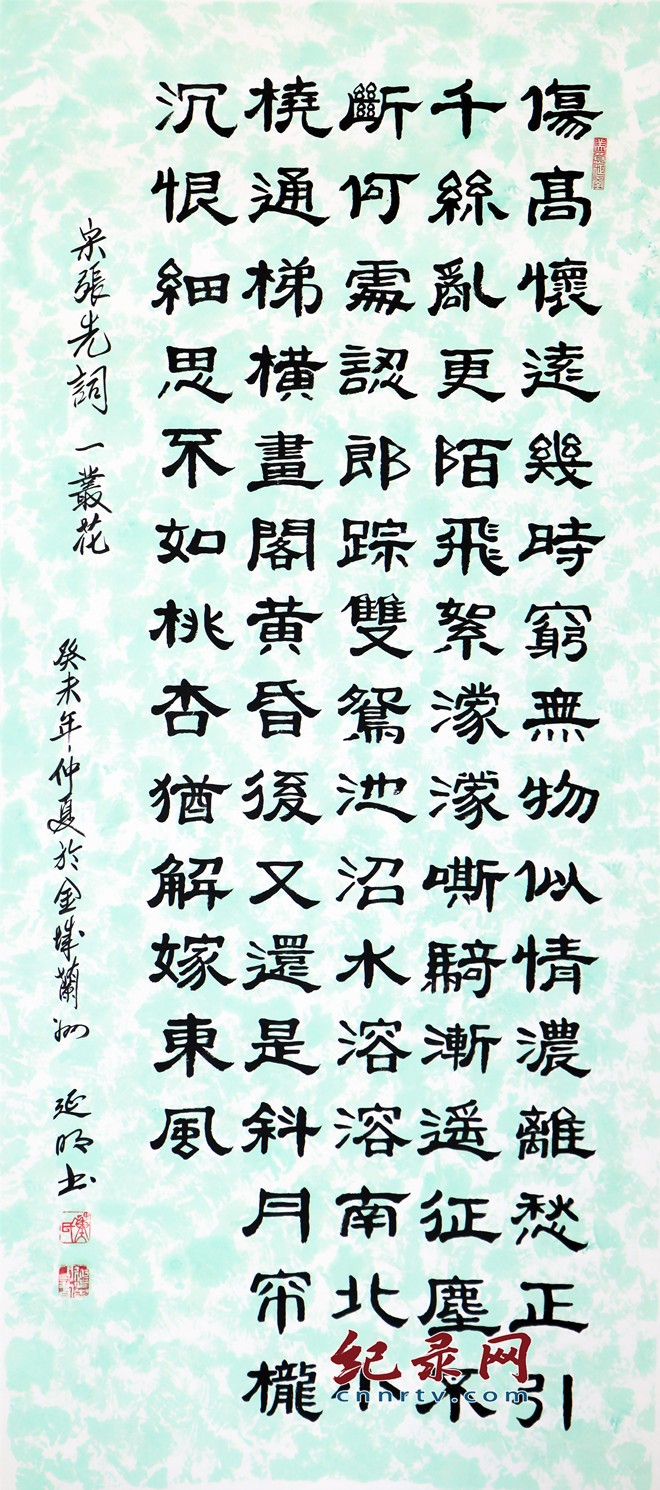 傷髙懷遠幾時窮無物似情濃離愁正引
千絲亂更陌飛絮濛濛嘶騎漸遥征塵不
斷何處認郎踪雙鴛池沼水溶溶南北小
橈通梯橫畫閣黄昏後又還是斜月帘櫳
沉恨細思不如桃杏猶解嫁東風
宋張先詞 一叢花
癸未年仲夏於金城蘭州 延明书
纪录网
cnnrtv.com